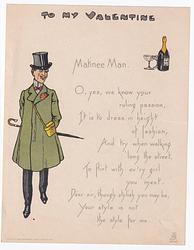 TO MY VALENTINE
Matinee Man.
O, yes, we know your
ruling passion,
It is to dress in height
of fashion,
And try when walking
long the street,
To flirt with ev'ry girl
you meet.
Dear sir, though stylish you may be,
Your style is not
the style for me.